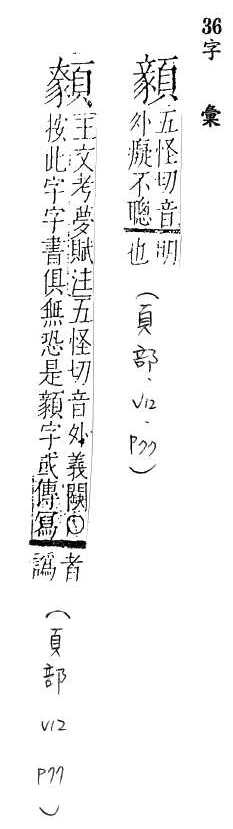 36 字彙
顡
五怪切音明
外癡不聰也
(頁部.V12.P77)
王文考夢賦注五怪切音外義闕○者
按此字字書俱無恐是顡字或傳寫譌
(頁部 V12 P77)